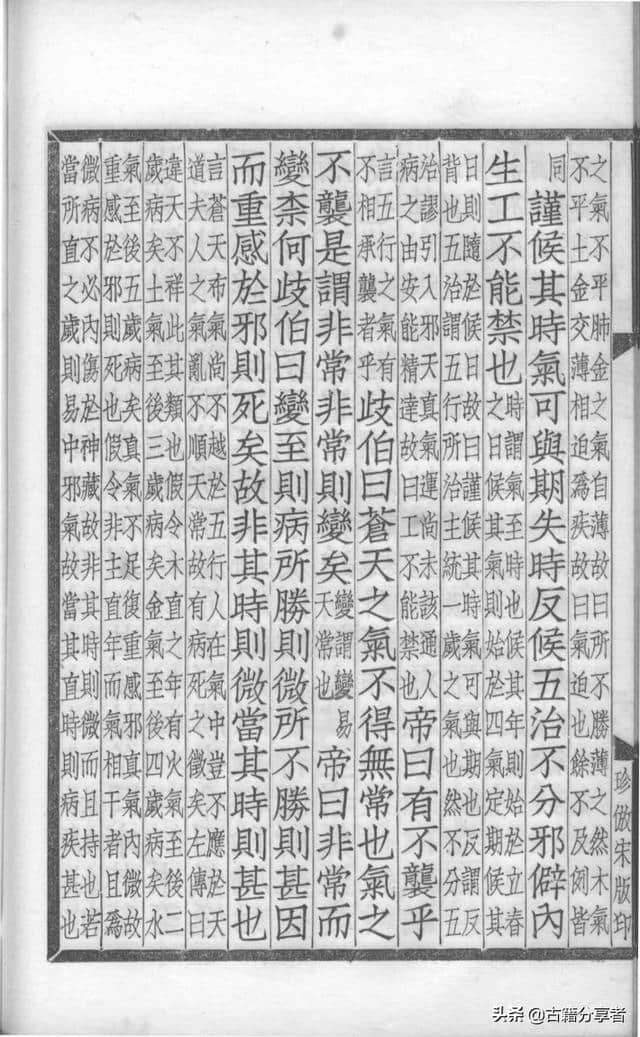 珍倣宋版印
之氣不平肺金之氣自薄故曰所不勝薄之然木氣
不平土金交薄相迫爲疾故曰氣迫也餘不及例皆
同
謹候其時氣可與期失時反候五治不分邪僻內
生工不能禁也
時謂氣至時也候其年則始於立春
之日候其氣則始於四氣定期候其
日則隨於候日故曰謹候其時氣可與期也反謂反
背也五治謂五行所治主統一歲之氣也然不分五
治謬引入邪天真氣運尚未該通人
病之由安能精達故曰工不能禁也
帝曰有不襲乎
言五行之氣有
不相承襲者乎
歧伯曰蒼天之氣不得無常也氣之
不襲是謂非常非常則變矣
變謂變易
天常也
帝曰非常而
變柰何歧伯曰變至則病所勝則微所不勝則甚因
而重感於邪則死矣故非其時則微當其時則甚也
言蒼天布氣尚不越於五行人在氣中豈不應於天
道夫人之氣亂不順天常故有病死之徵矣左傳曰
違天不祥此其類也假令木直之年有火氣至後二
歲病矣土氣至後三歲病矣金氣至後四歲病矣水
氣至後五歲病矣真氣不足復重感邪真氣內微故
重感於邪則死也假令非主直年而氣相干者且爲
微病不必內傷於神藏故非其時則微而且持也若
當所直之歲則易中邪氣故當其直時則病疾甚也
头条 @古籍分享者